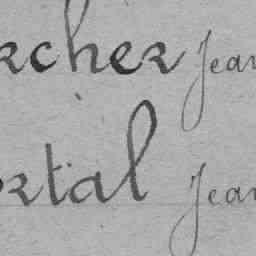 rcher Jean
ortal Jean